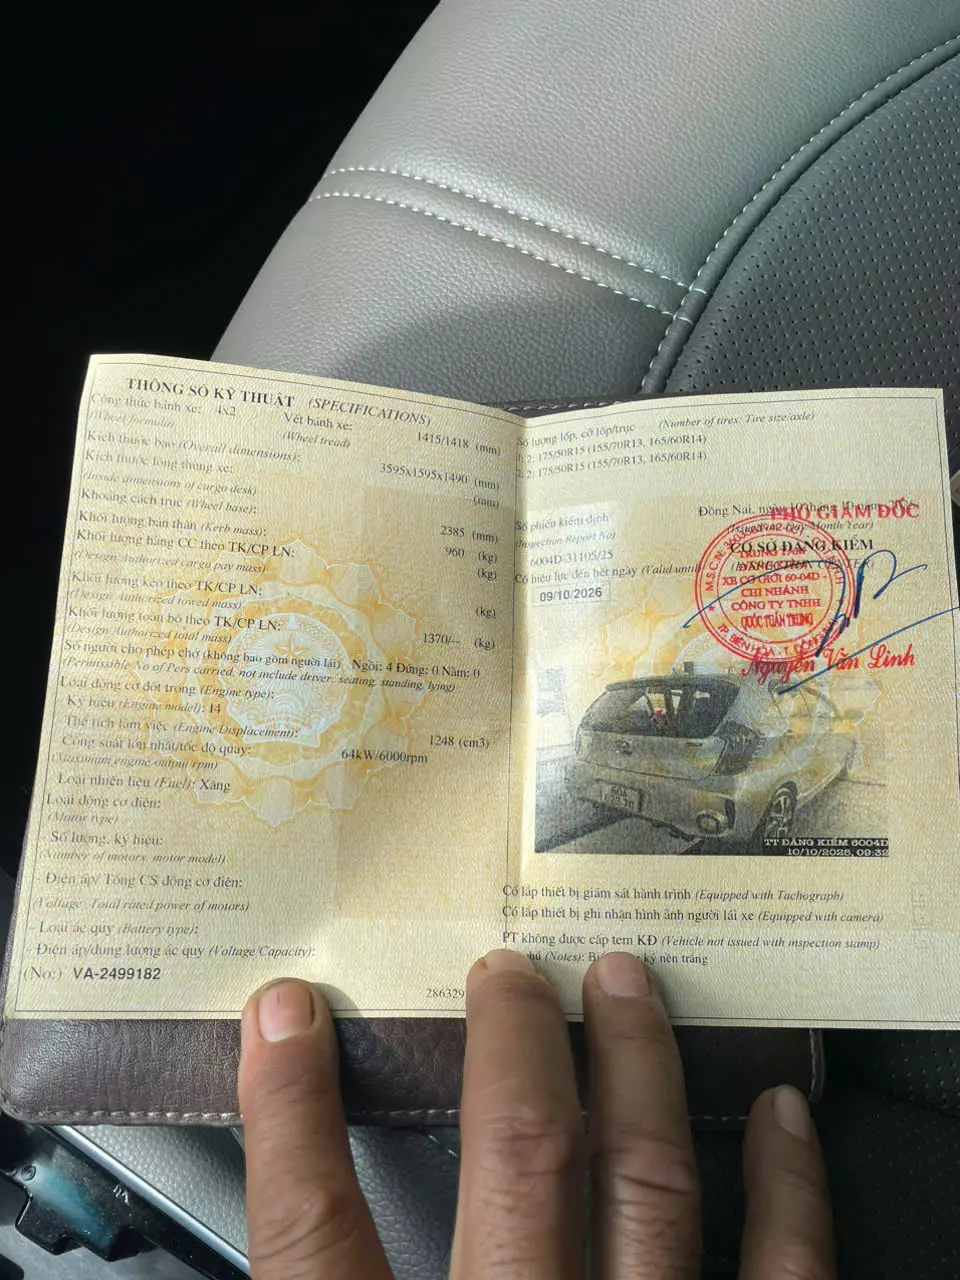 THÔNG SỐ KỸ THUẬT (SPECIFICATIONS)
Công thức bánh xe: 4x2 Vết bánh xe: 1415/1418 (mm)
(Wheel formula) (Wheel tread)
Kích thước bao (Overall dimensions): 3595x1595x1490 (mm)
Kích thước lòng thùng xe: (mm)
(Inside dimensions of cargo desk)
Khoảng cách trục (Wheel base): 2385 (mm)
Khối lượng bản thân (Kerb mass): 960 (kg)
Khối lượng hàng CC theo TK/CP LN: (kg)
(Design/Authorized cargo pay mass)
Khối lượng kéo theo TK/CP LN: (kg)
(Design/Authorized towed mass)
Khối lượng toàn bộ theo TK/CP LN: 1370/-- (kg)
(Design/Authorized total mass)
Số người cho phép chở (không bao gồm người lái) Ngồi: 4 Đứng: 0 Nằm: 0
(Permissible No of Pers carried, not include driver: seating, standing, lying)
Loại động cơ đốt trong (Engine type):
Ký hiệu (Engine model): I4
Thể tích làm việc (Engine Displacement): 1248 (cm3)
Công suất lớn nhất/tốc độ quay: 64kW/6000rpm
(Maximum engine output/rpm)
Loại nhiên liệu (Fuel): Xăng
Loại động cơ điện:
(Motor type)
- Số lượng, ký hiệu:
(Number of motors, motor model)
- Điện áp/ Tổng CS động cơ điện:
(Voltage/ Total rated power of motors)
- Loại ắc quy (Battery type):
- Điện áp/dung lượng ắc quy (Voltage/Capacity):
(No:) VA-2499182
286329
Số lượng lốp, cỡ lốp/trục (Number of tires: Tire size/axle)
1: 2; 175/50R15 (155/70R13, 165/60R14)
2: 2; 175/50R15 (155/70R13, 165/60R14)
Số phiếu kiểm định
(Inspection Report No)
6004D-31105/25
Có hiệu lực đến hết ngày (Valid until)
09/10/2026
Đồng Nai, ngày 10 tháng
(Issued on: Day/Month/Year)
CƠ SỞ ĐĂNG KIỂM
PHÓ GIÁM ĐỐC
TRUNG TÂM
ĐĂNG KIỂM
XE CƠ GIỚI 60-04D -
CHI NHÁNH
CÔNG TY TNHH
QUỐC TUẤN TRUNG
Nguyễn Văn Linh
TT ĐĂNG KIỂM 6004D
10/10/2025, 09:32
Có lắp thiết bị giám sát hành trình (Equipped with Tachograph)
Có lắp thiết bị ghi nhận hình ảnh người lái xe (Equipped with camera)
PT không được cấp tem KĐ (Vehicle not issued with inspection stamp)
(Notes): ký nền trắng